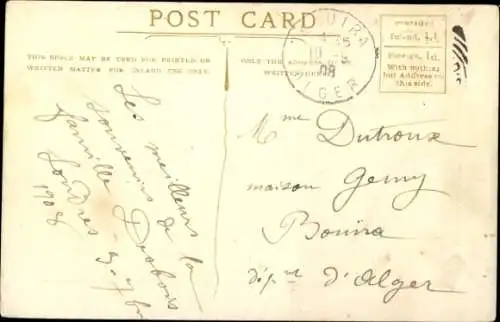 POST CARD
THIS SPACE MAY BE USED FOR PRINTED OR
WRITTEN MATTER FOR INLAND USE ONLY.
ONLY THE ADDRESS TO BE
WRITTEN HERE
BOUIRA
08
ALGER
Inland, ½d.
Foreign, 1d.
With nothing
but Address on
this side.
Les meilleurs
souvenirs de la
famille
Londres
1908
Mme Dutroux
maison Geny
Bouira
dépt d'Alger